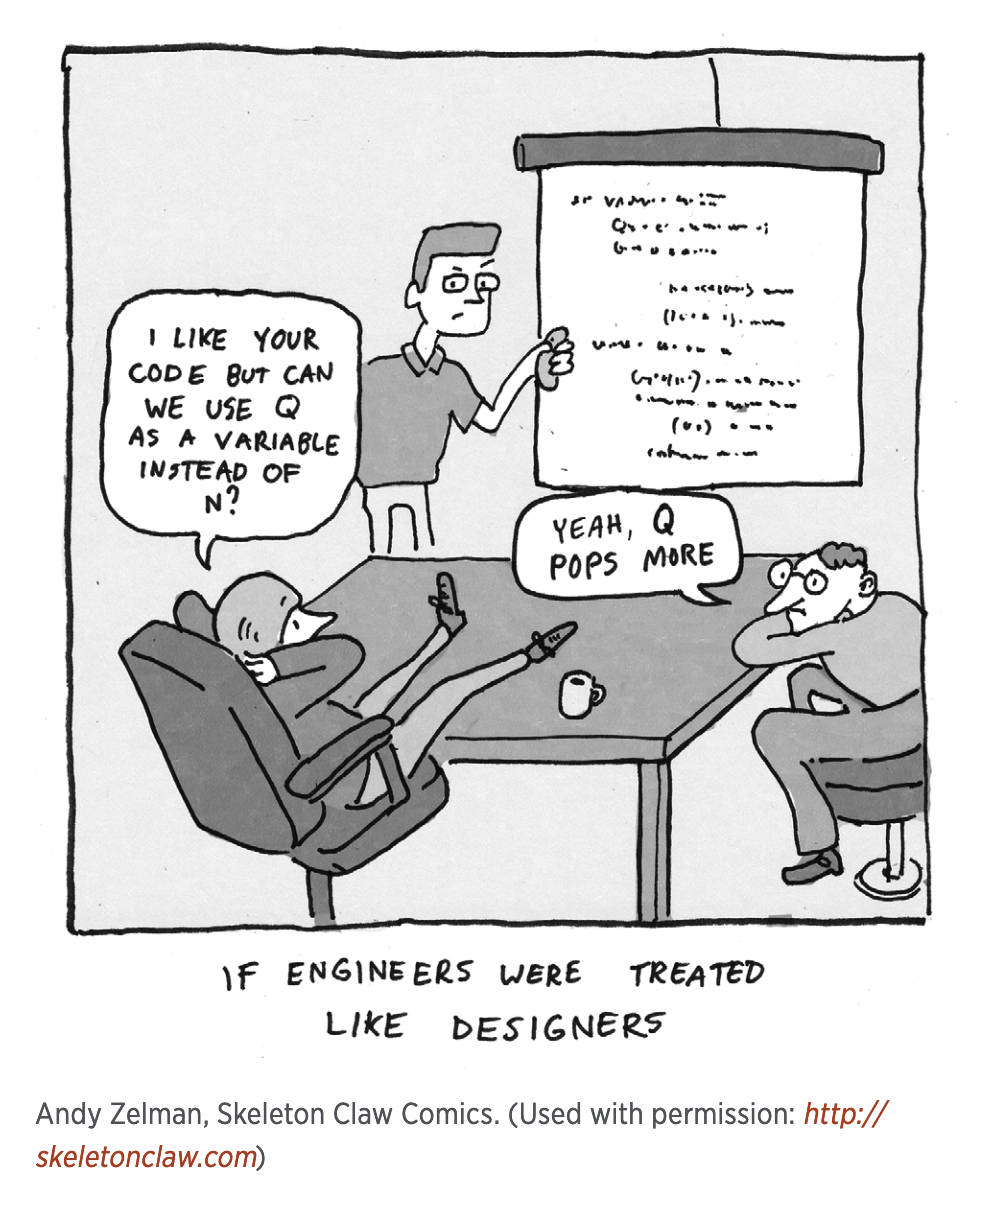 I LIKE YOUR
CODE BUT CAN
WE USE Q
AS A VARIABLE
INSTEAD OF
N?
YEAH, Q
POPS MORE
IF ENGINEERS WERE TREATED
LIKE DESIGNERS
Andy Zelman, Skeleton Claw Comics. (Used with permission: http://
skeletonclaw.com)